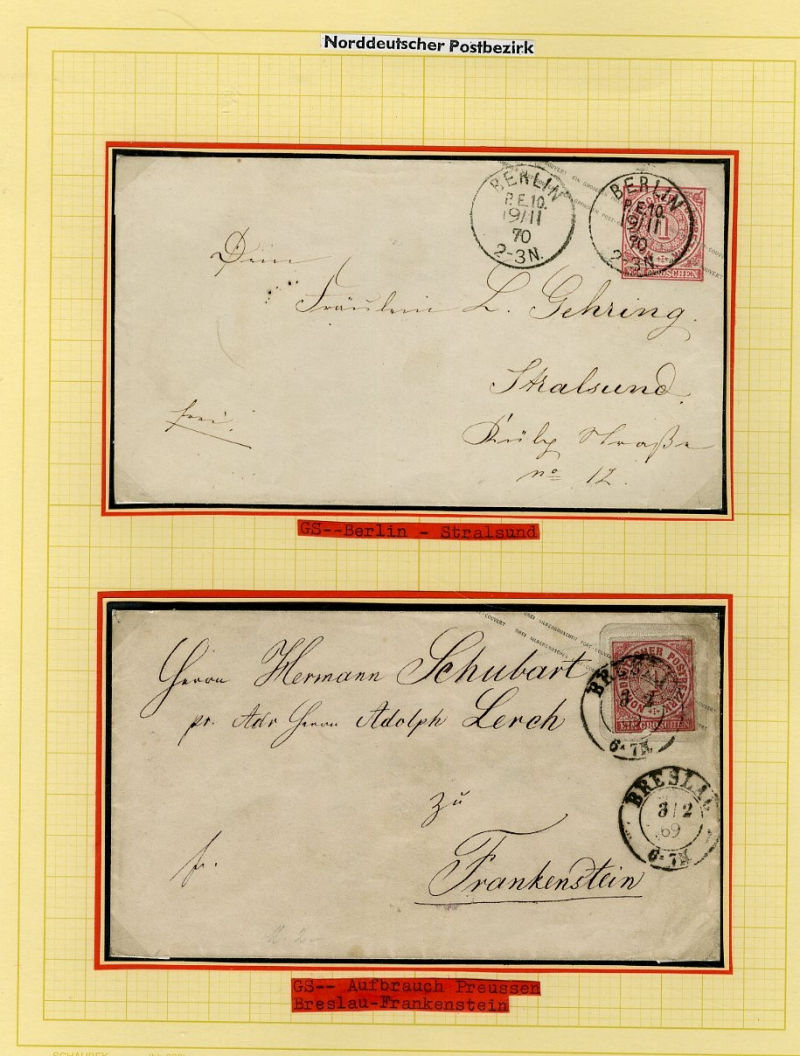 Norddeutscher Postbezirk
BERLIN
P.E.10.
19/11
70
2-3N.
BERLIN
P.E.10.
19/11
70
2-3N.
1
GROSCHEN
Fräulein L. Gehring.
Stralsund.
Straße
no 12.
frei.
GS--Berlin - Stralsund
NORDDEUTSCHER POSTBEZIRK
GROSCHEN
BRESLAU
3 2
6-7N
Herrn Hermann Schubart
pr. Adr Herrn Adolph Lerch
zu
Frankenstein
fr.
BRESLAU
3 2
69
6-7N
GS-- Aufbrauch Preussen
Breslau-Frankenstein